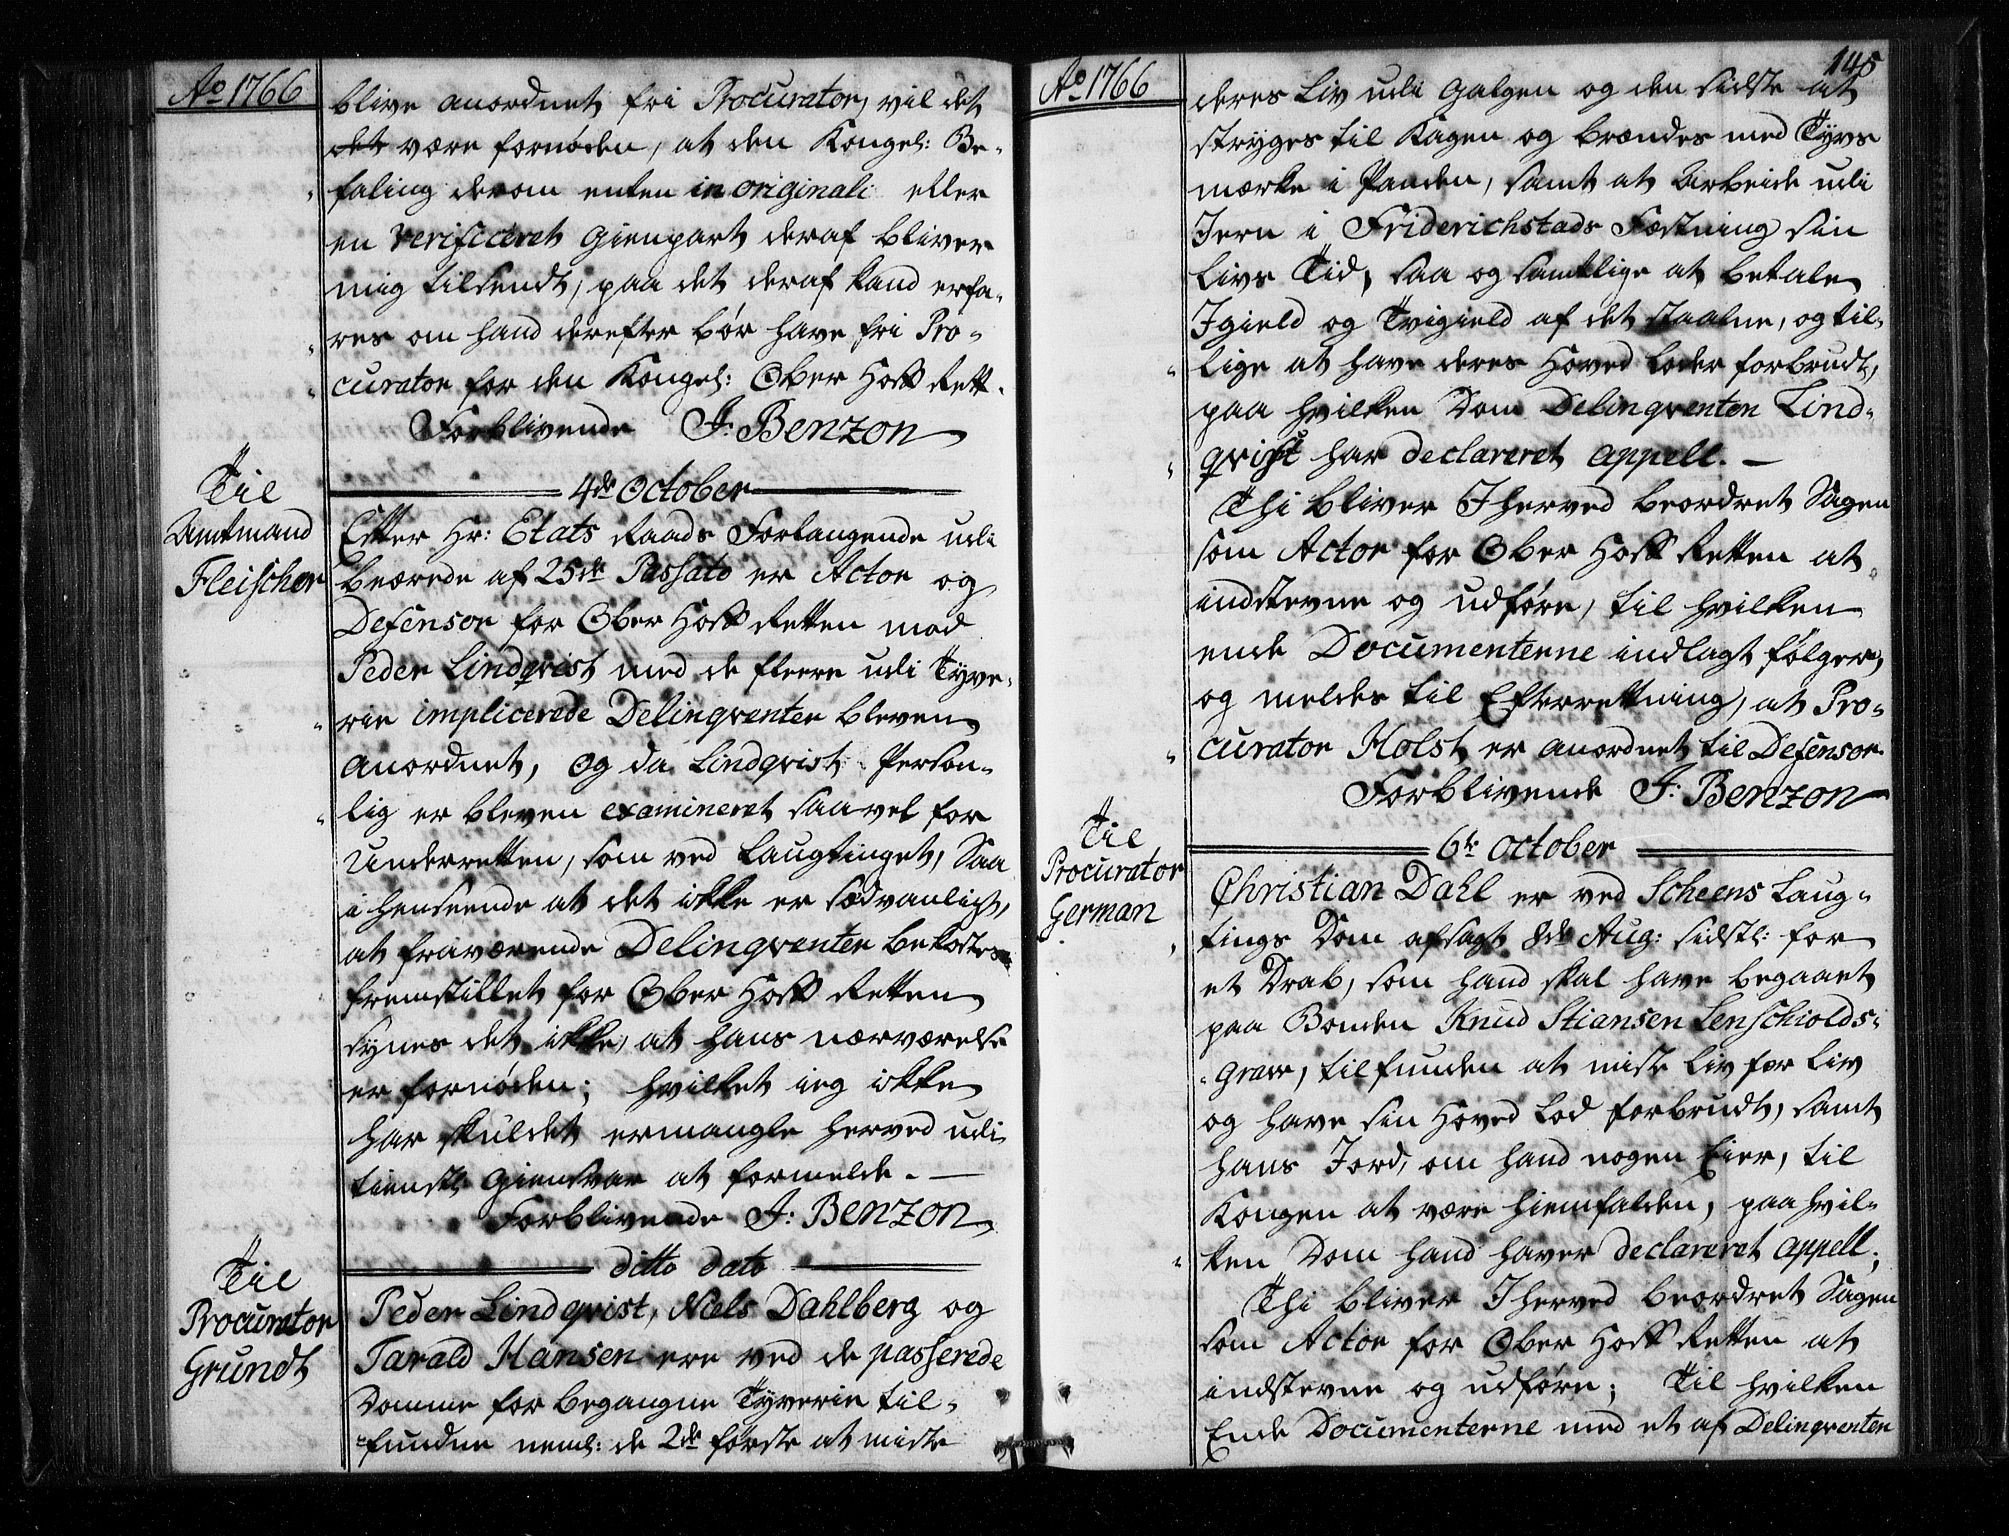 Ao 1766
blive anordnet fri Procurator, vil det
det være fornøden, at den Kongel: Be-
faling derom enten in originali eller
en verificeret Gienpart deraf bliver
mig tilsendt, paa det deraf kand erfa-
res om hand derefter bør have fri Pro-
curator for den Kongel: Ober Hoff Rett.
Forblivende J: Benzon
4de October
Til
Amtmand
Fleischer
Efter Hr: Etats Raads Forlangende udi
beærede af 25de Passato er Actor og
Defensor for Ober Hoff Retten mod
Peder Lindqvist med de fleere udi Tyve-
rie implicerede Delinqventer bleven
anordnet, og da Lindqvist Person-
lig er bleven examineret saavel for
Underretten, som ved Laugtinget, Saa
i henseende at det ikke er sædvanligt,
at fraværende Delinqventer bekostes
fremstillet for Ober Hoff Retten
synes det ikke, at hans nærværelse
er fornøden; hvilket ieg ikke
har skuldet ermangle herved udi
tienstl: Giensvar at formelde.
Forblivende J: Benzon
ditto dato
Til
Procurator
Grundt
Peder Lindqvist, Niels Dahlberg og
Tarald Hansen ere ved de passerede
Domme for begangne Tyverie til-
fundne neml: de 2de første at miste
Ao 1766
145
deres Liv udi Galgen og den sidste at
stryges til Kagen og brændes med Tyvs
mærke i Panden, samt at Arbeide udi
Jern i Friderichstads Fæstning sin
Livs Tid, saa og samtlige at betale
Igield og Tvigield af det staalne, og til-
lige at have deres Hoved Loder forbrudt,
paa hvilken Dom Delinqventen Lind-
qvist har declareret appell.
Thi bliver I herved beordret Sagen
som Actor for Ober Hoff Retten at
indstevne og udføre, til hvilken
ende Documenterne indlagt følger,
og meldes til Efterretning, at Pro-
curator Holst er anordnet til Defensor
Forblivende J: Benzon
6te October
Til
Procurator
German
Christian Dahl er ved Scheens Laug-
tings Dom afsagt 8de Aug: sidstl: for
et Drab, som hand skal have begaaet
paa Bonden Knud Stiansen Lenschiolds-
graw, tilfunden at miste Liv for Liv
og have sin Hoved Lod forbrudt, samt
hans Jord, om hand nogen Eier, til
Kongen at være hiemfalden, paa hvil-
ken Dom hand haver declareret appell;
Thi bliver I herved beordret Sagen
som Actor for Ober Hoff Retten at
indstevne og udføre; Til hvilken
Ende Documenterne med et af Delinqventen